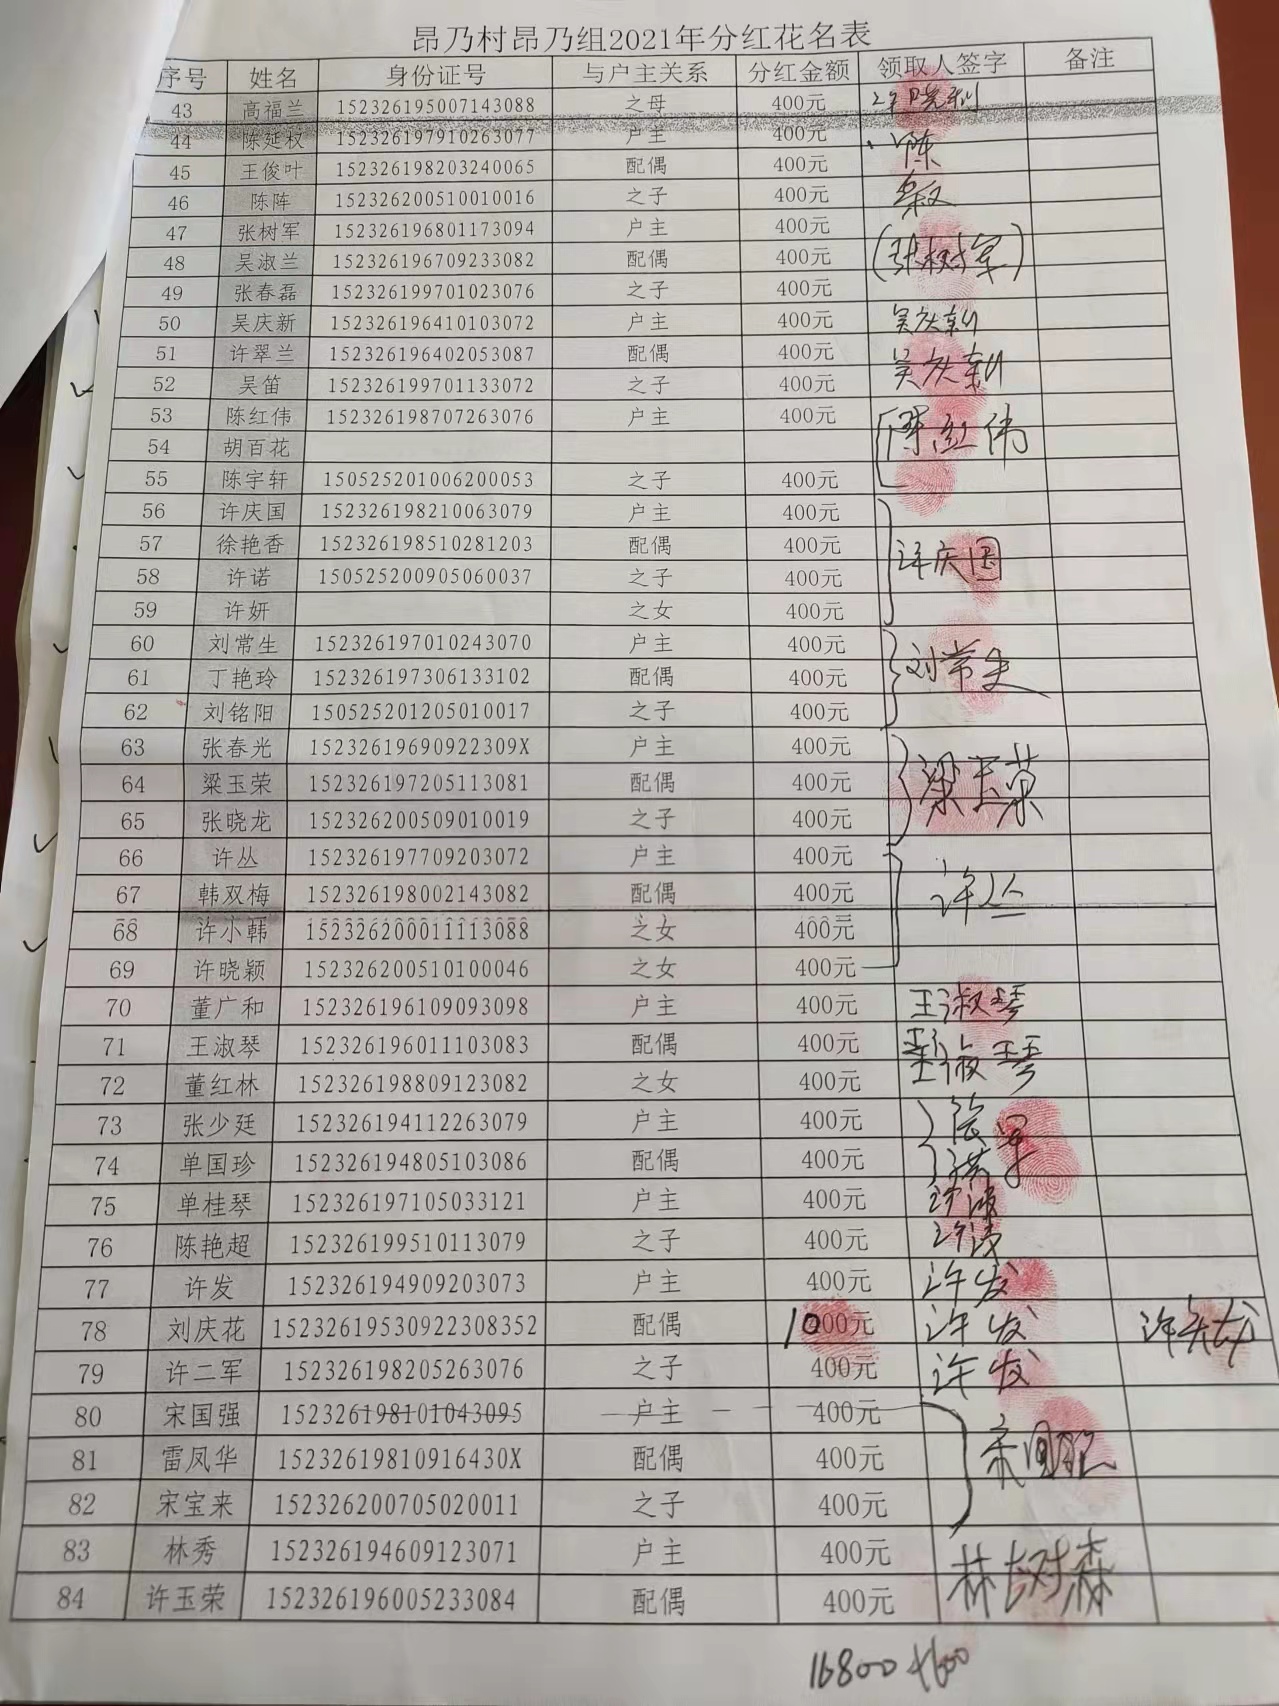 昂乃村昂乃组2021年分红花名表
序号 姓名 身份证号 与户主关系 分红金额 领取人签字 备注
43 高福兰 152326195007143088 之母 400元 许晓利
44 陈延权 152326197910263077 户主 400元 陈
45 王俊叶 152326198203240065 配偶 400元
46 陈阵 152326200510010016 之子 400元
47 张树军 152326196801173094 户主 400元
48 吴淑兰 152326196709233082 配偶 400元 (张树军)
49 张春磊 152326199701023076 之子 400元
50 吴庆新 152326196410103072 户主 400元 吴庆新
51 许翠兰 152326196402053087 配偶 400元 吴庆新
52 吴笛 152326199701133072 之子 400元
53 陈红伟 152326198707263076 户主 400元 陈红伟
54 胡百花
55 陈宇轩 150525201006200053 之子 400元
56 许庆国 152326198210063079 户主 400元
57 徐艳香 152326198510281203 配偶 400元 许庆国
58 许诺 150525200905060037 之子 400元
59 许妍 之女 400元
60 刘常生 152326197010243070 户主 400元
61 丁艳玲 152326197306133102 配偶 400元 刘常生
62 刘铭阳 150525201205010017 之子 400元
63 张春光 15232619690922309X 户主 400元
64 粱玉荣 152326197205113081 配偶 400元 梁玉荣
65 张晓龙 152326200509010019 之子 400元
66 许丛 152326197709203072 户主 400元
67 韩双梅 152326198002143082 配偶 400元 许丛
68 许小韩 152326200011113088 之女 400元
69 许晓颖 152326200510100046 之女 400元
70 董广和 152326196109093098 户主 400元 王淑琴
71 王淑琴 152326196011103083 配偶 400元 王淑琴
72 董红林 152326198809123082 之女 400元
73 张少廷 152326194112263079 户主 400元
74 单国珍 152326194805103086 配偶 400元
75 单桂琴 152326197105033121 户主 400元
76 陈艳超 152326199510113079 之子 400元
77 许发 152326194909203073 户主 400元 许发
78 刘庆花 15232619530922308352 配偶 1000元 许发
79 许二军 152326198205263076 之子 400元 许发
80 宋国强 152326198101043095 户主 400元
81 雷凤华 15232619810916430X 配偶 400元 宋国强
82 宋宝来 152326200705020011 之子 400元
83 林秀 152326194609123071 户主 400元 林树森
84 许玉荣 152326196005233084 配偶 400元
16800+600